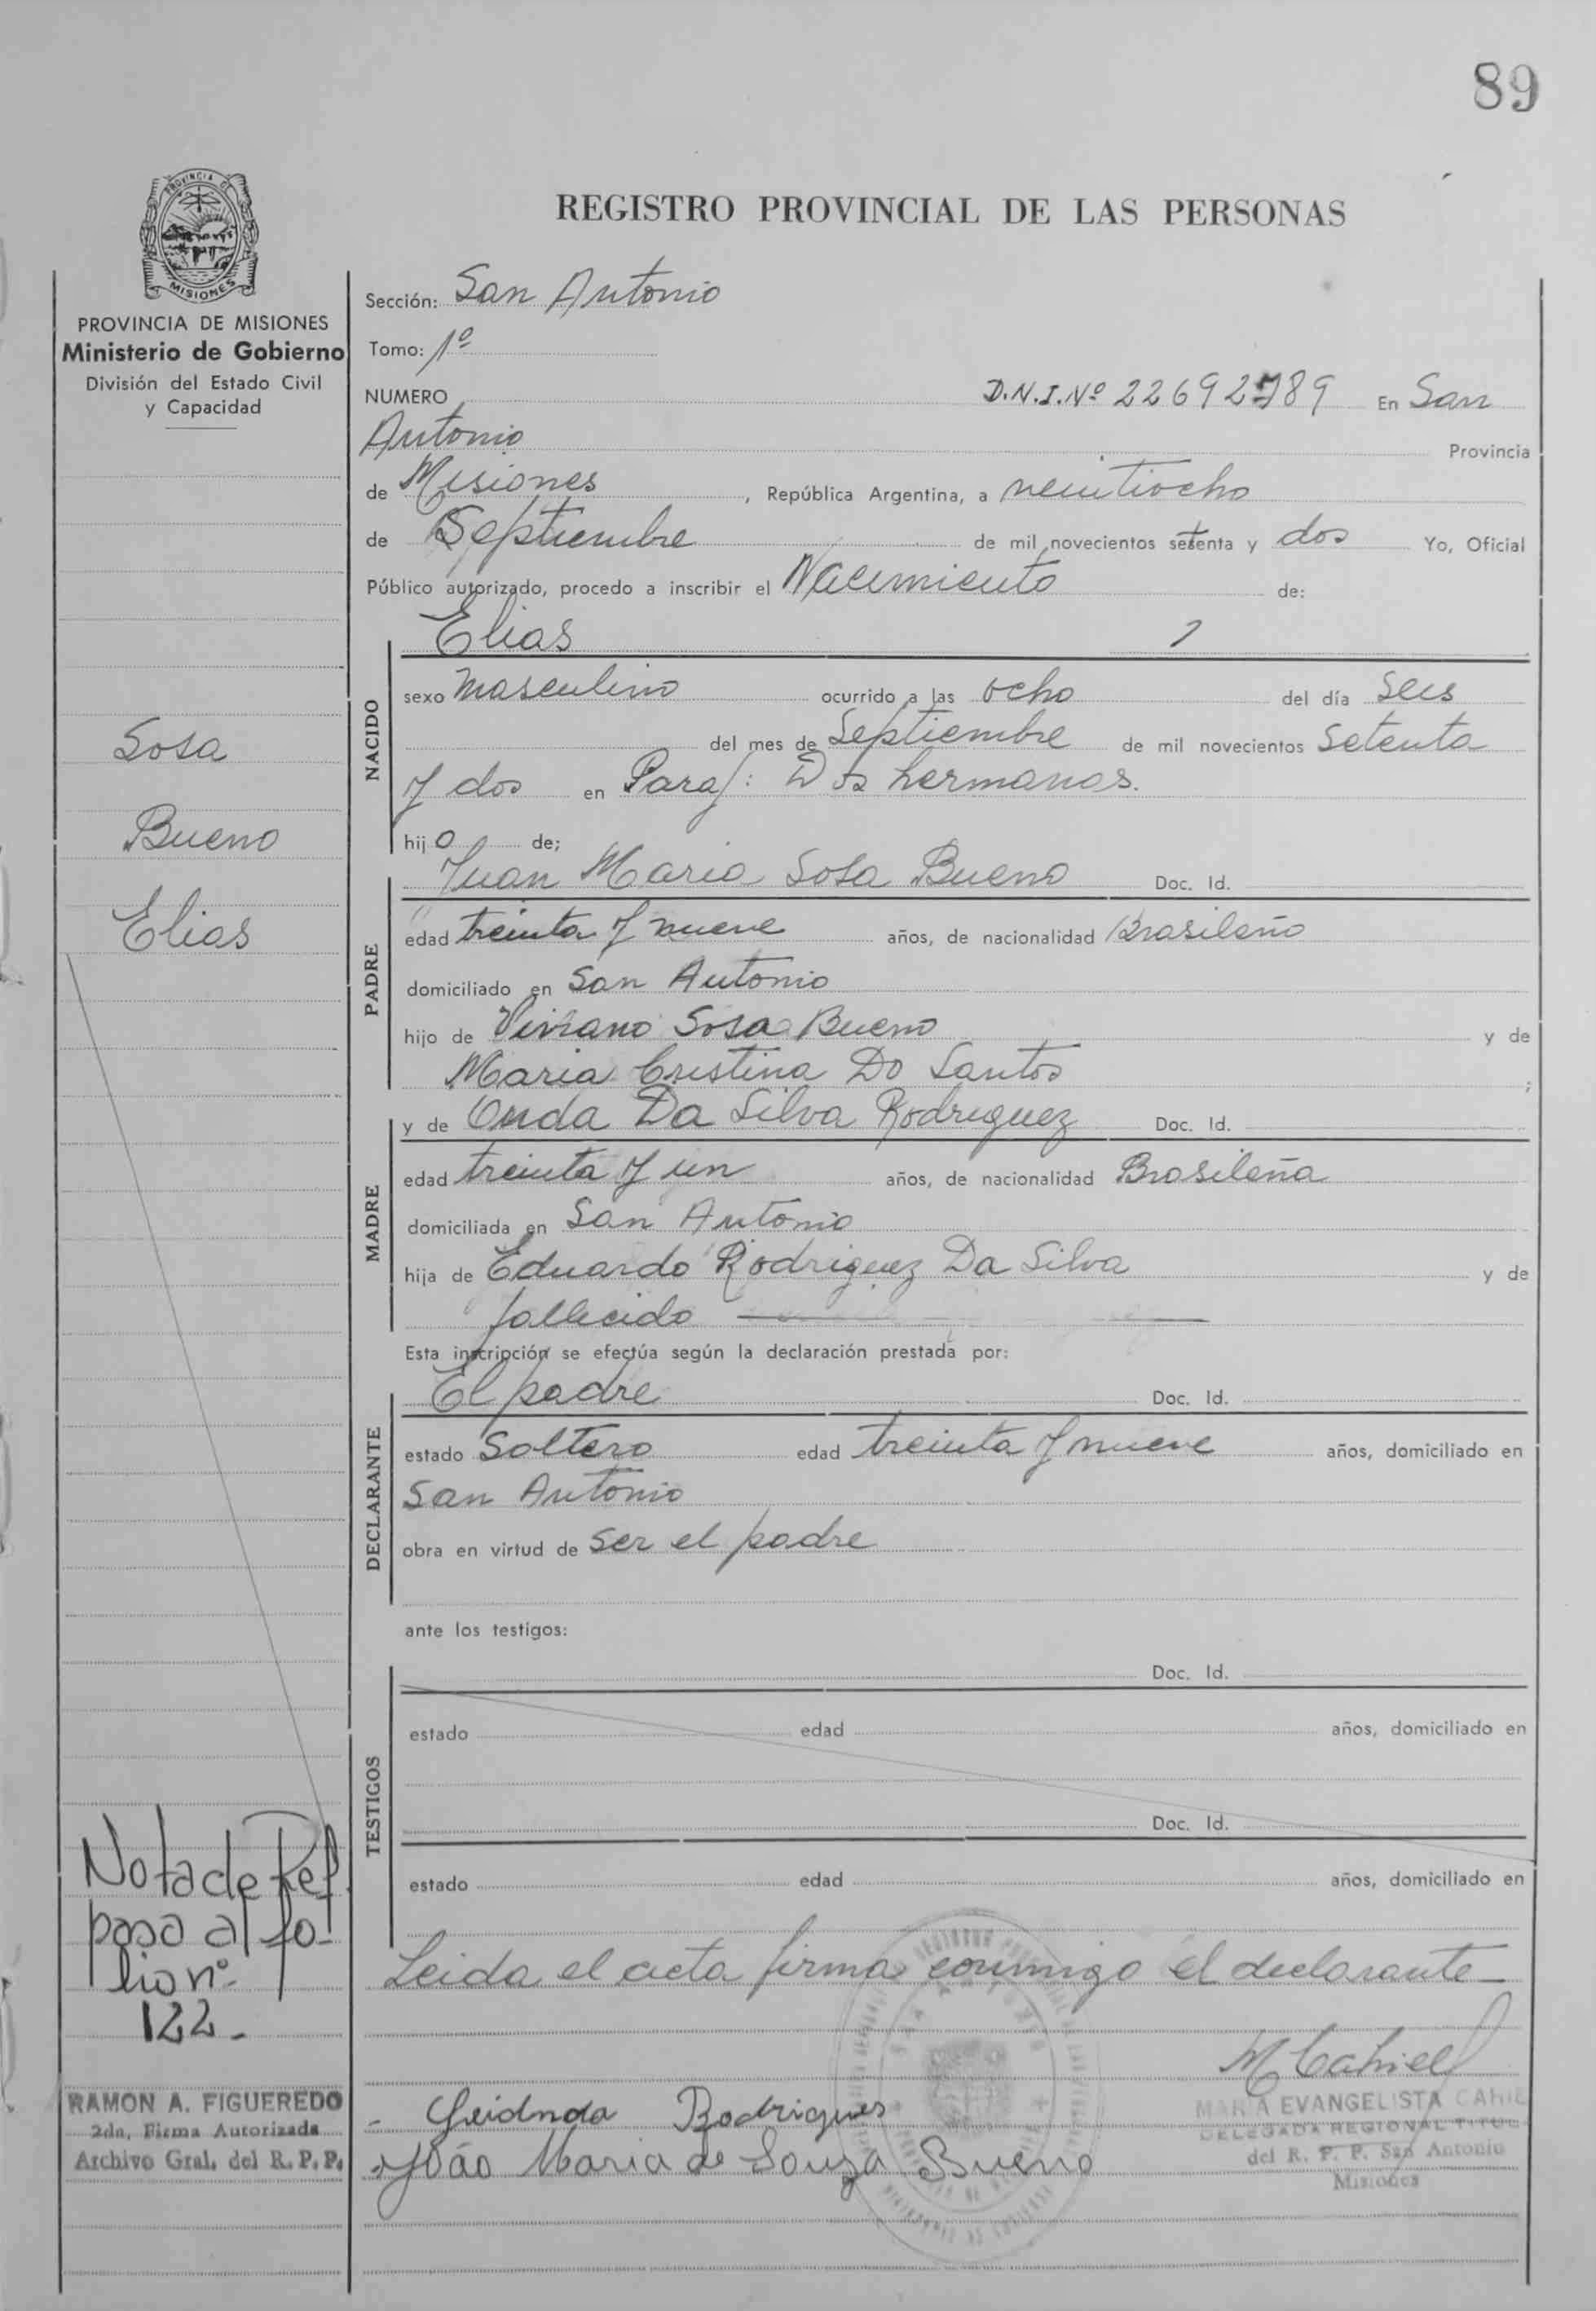 89
REGISTRO PROVINCIAL DE LAS PERSONAS
PROVINCIA DE
MISIONES
PROVINCIA DE MISIONES
Ministerio de Gobierno
División del Estado Civil
y Capacidad
Sosa
Bueno
Elias
Nota de Ref.
paso al fo-
lio nº
122-
RAMON A. FIGUEREDO
2da. Firma Autorizada
Archivo Gral. del R. P. P.
Sección: San Antonio
Tomo: 1º
NUMERO D.N.I. Nº 22692789 En San
Antonio Provincia
de Misiones, República Argentina, a veintiocho
de Septiembre de mil novecientos setenta y dos Yo, Oficial
Público autorizado, procedo a inscribir el Nacimiento de:
Elias
NACIDO
sexo masculino ocurrido a las ocho del día seis
del mes de Septiembre de mil novecientos setenta
y dos en Paraj: Dos hermanas.
hijo de;
PADRE
Juan Maria Sosa Bueno Doc. Id.
edad treinta y nueve años, de nacionalidad Brasileño
domiciliado en San Antonio
hijo de Viviano Sosa Bueno y de
Maria Cristina Do Santos ;
MADRE
y de Onda Da Silva Rodriguez Doc. Id.
edad treinta y un años, de nacionalidad Brasileña
domiciliada en San Antonio
hija de Eduardo Rodriguez Da Silva y de
fallecido
Esta inscripción se efectúa según la declaración prestada por:
DECLARANTE
El padre Doc. Id.
estado Soltero edad treinta y nueve años, domiciliado en
San Antonio
obra en virtud de ser el padre
ante los testigos:
TESTIGOS
Doc. Id.
estado edad años, domiciliado en
Doc. Id.
estado edad años, domiciliado en
Leida el acta firma conmigo el declarante-
M Cahiel
Rodrigues
João Maria de Souza Bueno
MARIA EVANGELISTA
DELEGADA REGIONAL
del R. P. P. San Antonio
Misiones